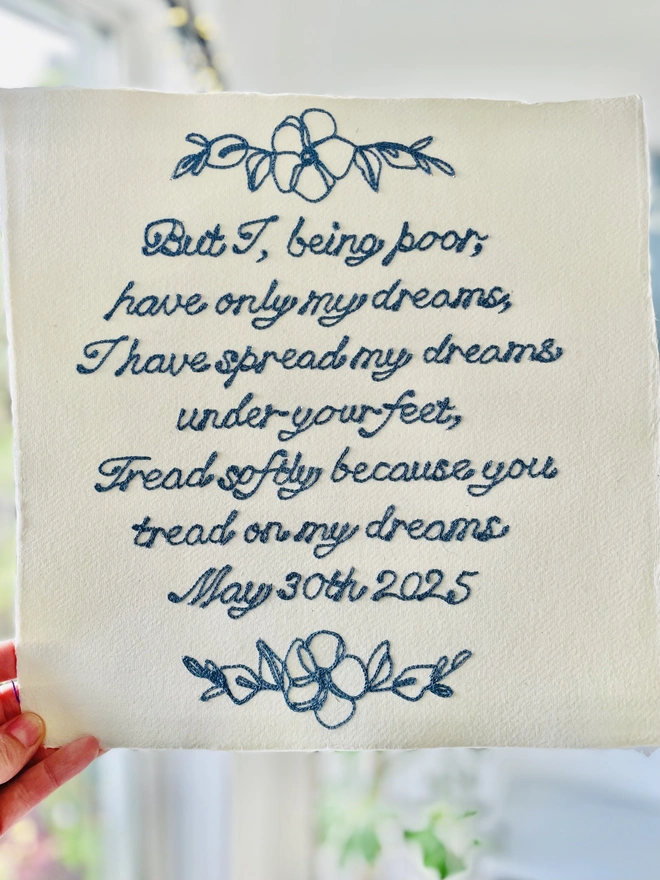 But I, being poor,
have only my dreams,
I have spread my dreams
under your feet,
Tread softly because you
tread on my dreams
May 30th 2025